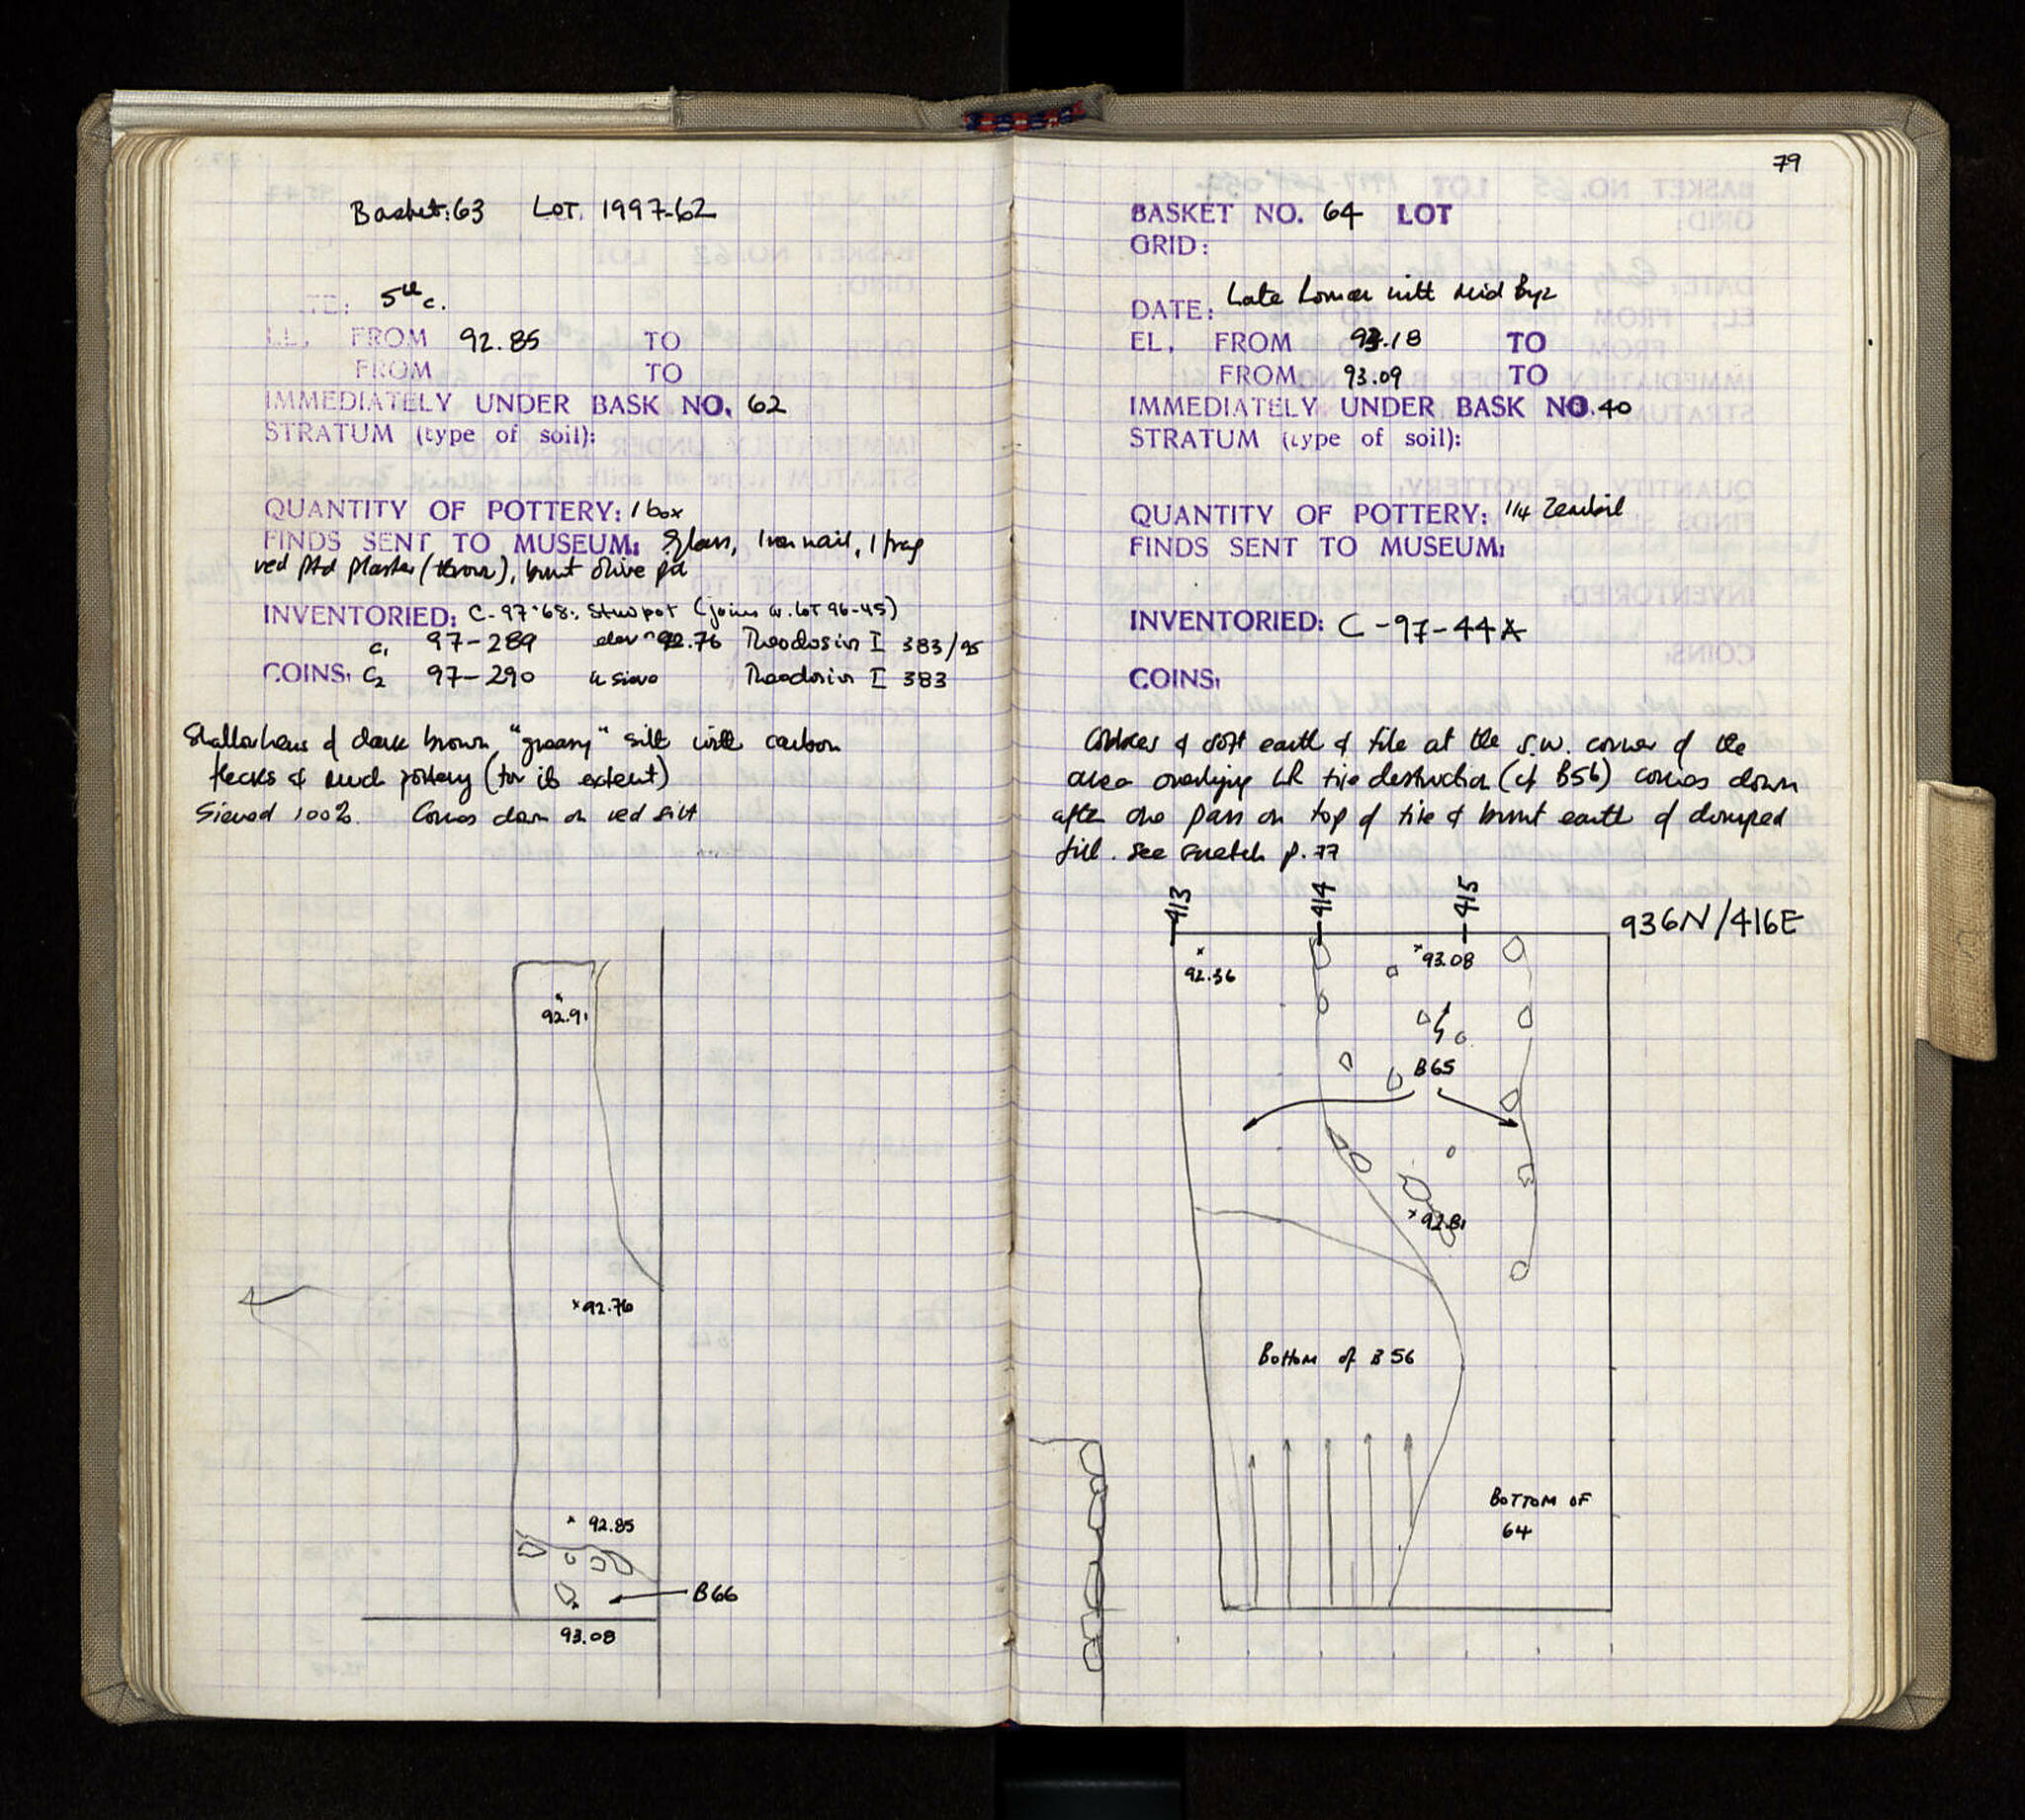 Basket: 63 LOT. 1997-62
TE: 5th c.
EL, FROM 92.85 TO
FROM TO
IMMEDIATELY UNDER BASK NO. 62
STRATUM (type of soil):
QUANTITY OF POTTERY: 1 box
FINDS SENT TO MUSEUM: Glass, Iron nail, 1 frag
red ptd plaster (thrown), burnt olive pit
INVENTORIED: C-97-68: Stewpot (joins w. lot 96-45)
C1 97-289 elev 92.76 Theodosius I 383/95
COINS: C2 97-290 in sieve Theodosius I 383
of dark brown "greasy" silt with carbon
flecks & much pottery (for its extent)
Sieved 100%. Comes down on red silt
92.91
92.76
92.85
B66
93.08
79
BASKET NO. 64 LOT
GRID:
DATE: Late Roman with Mid Byz
EL, FROM 93.18 TO
FROM 93.09 TO
IMMEDIATELY UNDER BASK NO. 40
STRATUM (type of soil):
QUANTITY OF POTTERY: 1/4 Zembil
FINDS SENT TO MUSEUM:
INVENTORIED: C-97-44A
COINS:
& soft earth & tile at the S.W. corner of the
area overlying LR tile destruction (cf B56) comes down
after one pass on top of tile & burnt earth of dumped
fill. See sketch p. 77
413 414 415
936N/416E
92.36 93.08
B65
92.81
Bottom of B56
BOTTOM OF
64